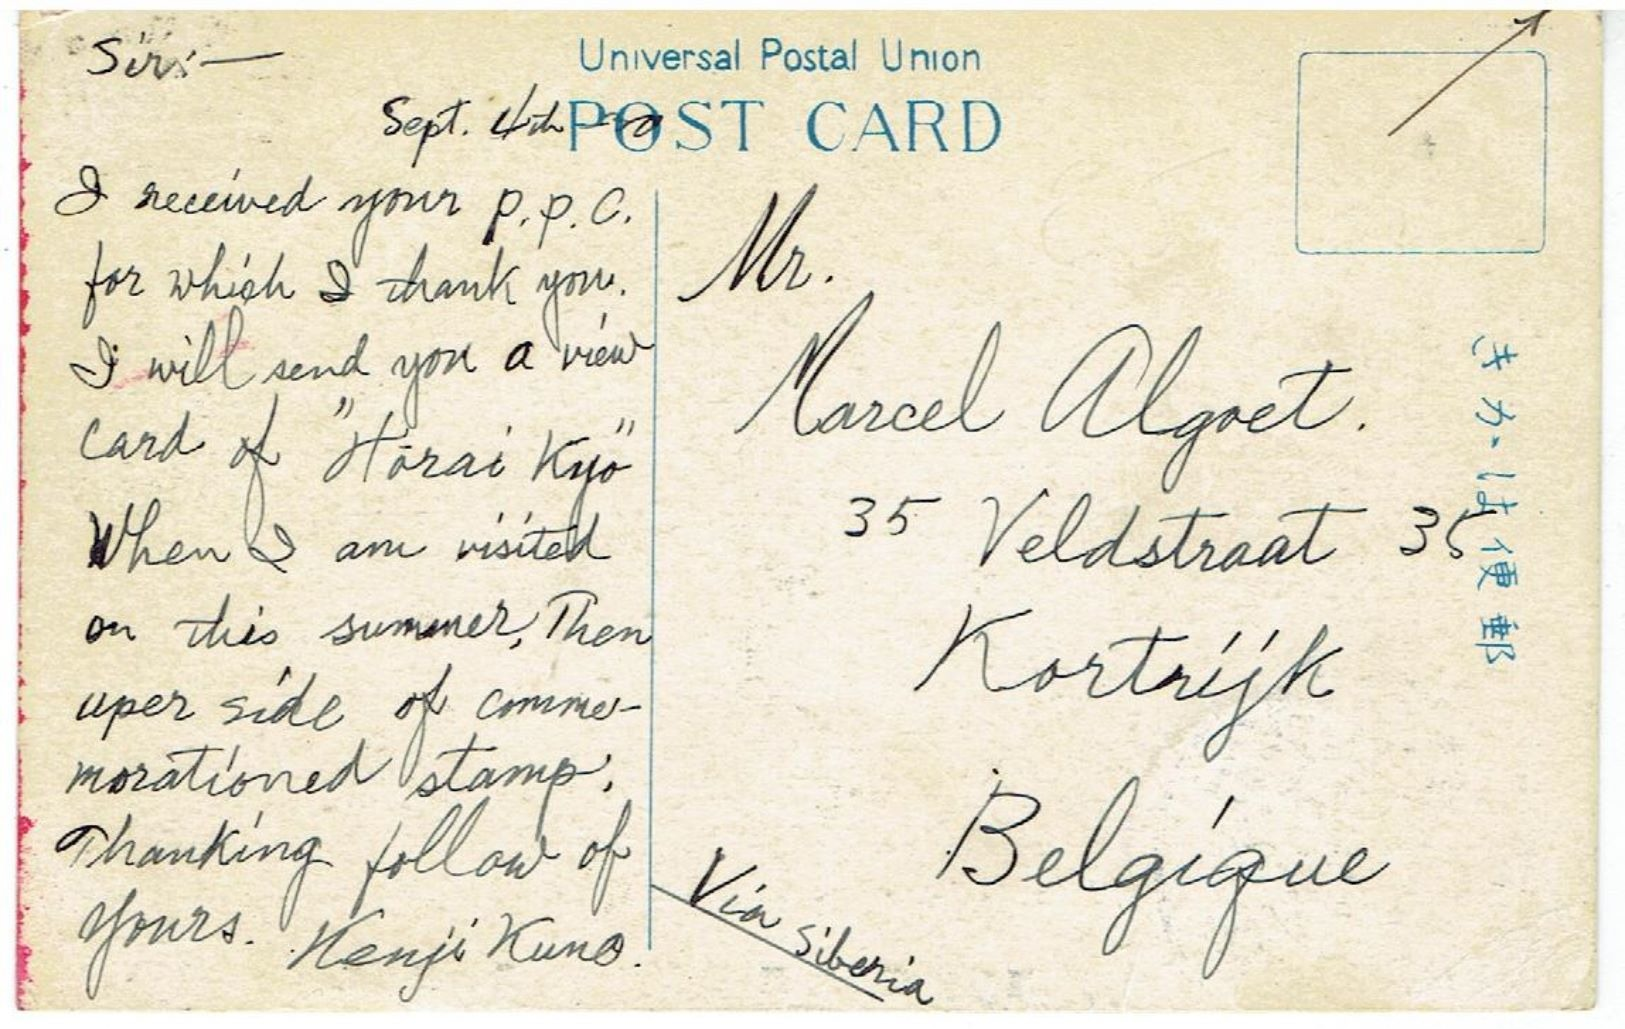 Sir:—
Universal Postal Union
POST CARD
Sept. 4th
I received your p.p.c.
for which I thank you.
I will send you a view
card of "Hōrai Kyō"
When I am visited
on this summer, Then
uper side of comme-
morationed stamp.
Thanking follow of
yours. Kenji Kuno.
Mr.
Marcel Algoet.
35 Veldstraat 35
Kortrijk
Belgique
Via Siberia
郵便はがき